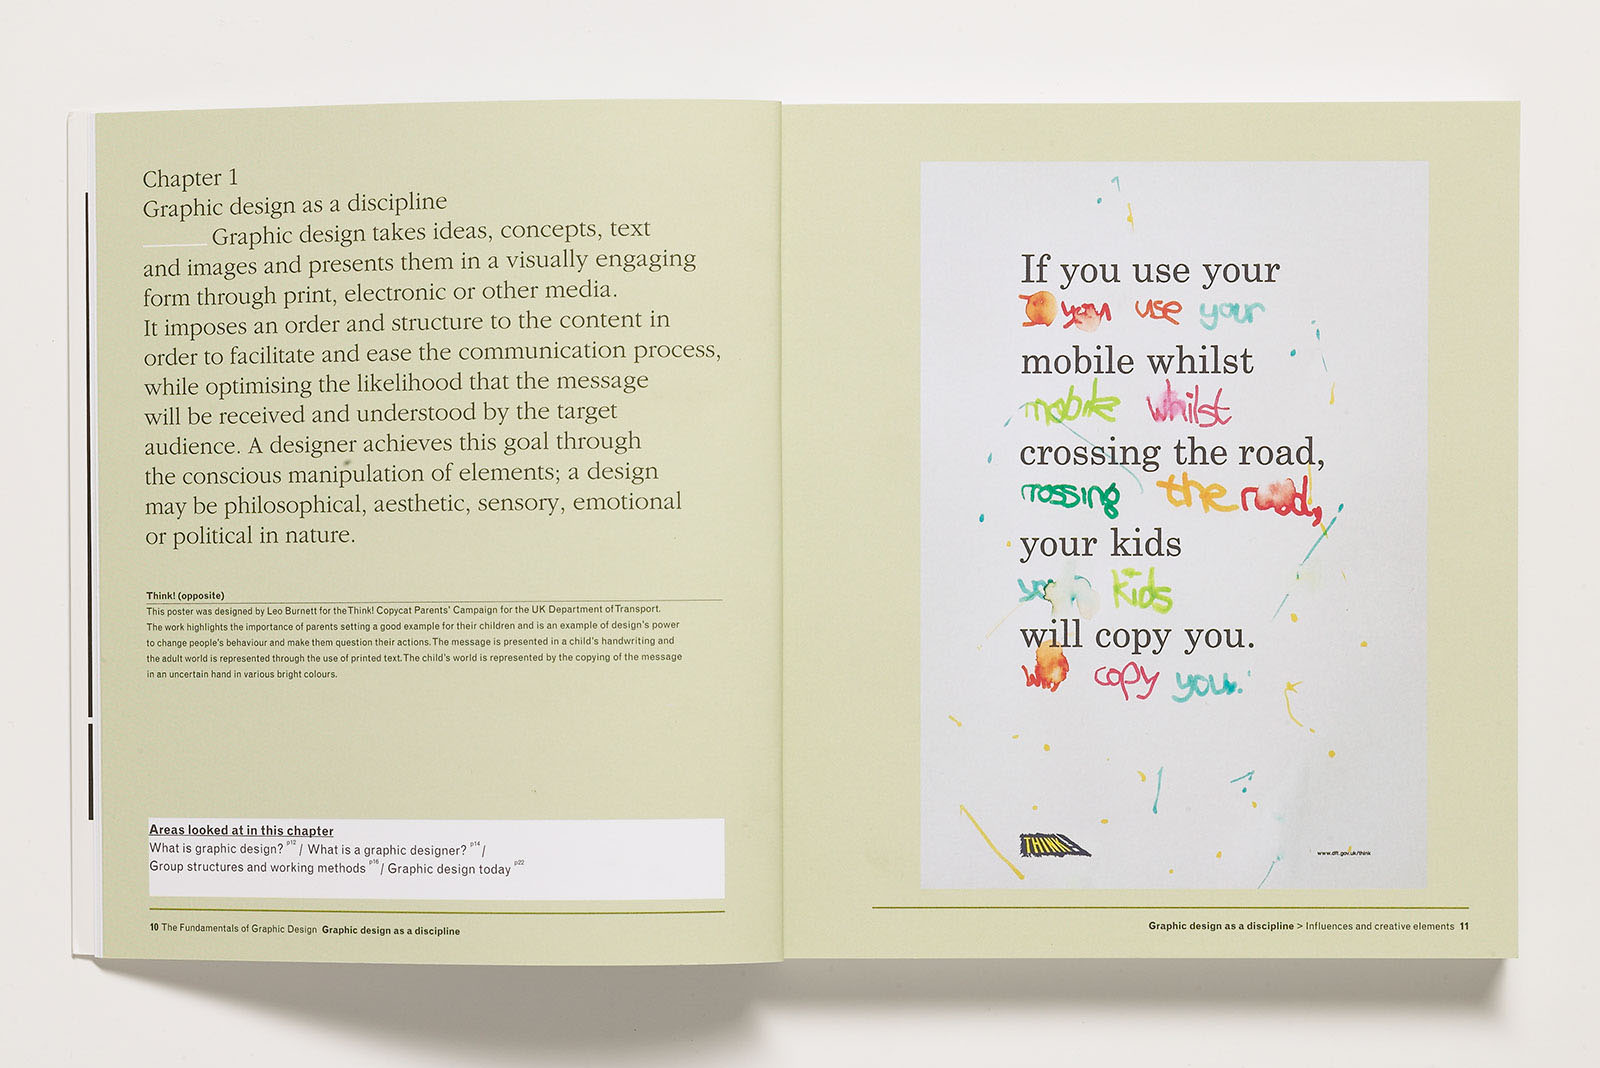 Chapter 1
Graphic design as a discipline
Graphic design takes ideas, concepts, text
and images and presents them in a visually engaging
form through print, electronic or other media.
It imposes an order and structure to the content in
order to facilitate and ease the communication process,
while optimising the likelihood that the message
will be received and understood by the target
audience. A designer achieves this goal through
the conscious manipulation of elements; a design
may be philosophical, aesthetic, sensory, emotional
or political in nature.
Think! (opposite)
This poster was designed by Leo Burnett for the Think! Copycat Parents' Campaign for the UK Department of Transport.
The work highlights the importance of parents setting a good example for their children and is an example of design's power
to change people's behaviour and make them question their actions. The message is presented in a child's handwriting and
the adult world is represented through the use of printed text. The child's world is represented by the copying of the message
in an uncertain hand in various bright colours.
Areas looked at in this chapter
What is graphic design? p12 / What is a graphic designer? p14 /
Group structures and working methods p16 / Graphic design today p22
10 The Fundamentals of Graphic Design Graphic design as a discipline
If you use your
you use your
mobile whilst
mobile whilst
crossing the road,
crossing the road,
your kids
kids
will copy you.
will copy you.
THINK!
www.dft.gov.uk/think
Graphic design as a discipline > Influences and creative elements 11